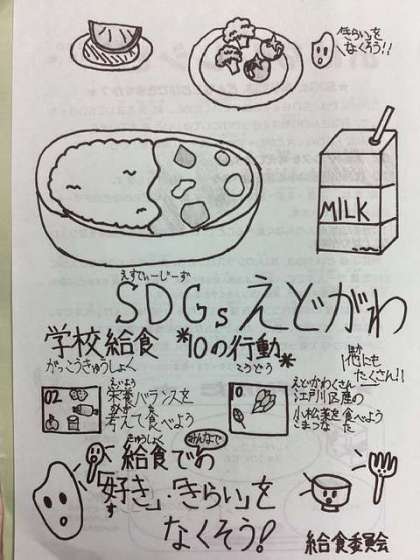 「きらい」を
なくろう!!
MILK
えすでぃーじーず
SDGs えどがわ
学校給食 *10の行動*
がっこうきゅうしょく こうどう
他にも
たくさん!!
02
栄養バランスを
考えて食べよう
えどがわくさん
江戸川区産の
小松菜を食べよう
こまつな た
きゅうしょく みんなで
給食でわ
「好き」・「きらい」を
す
なくそう!
給食委員会